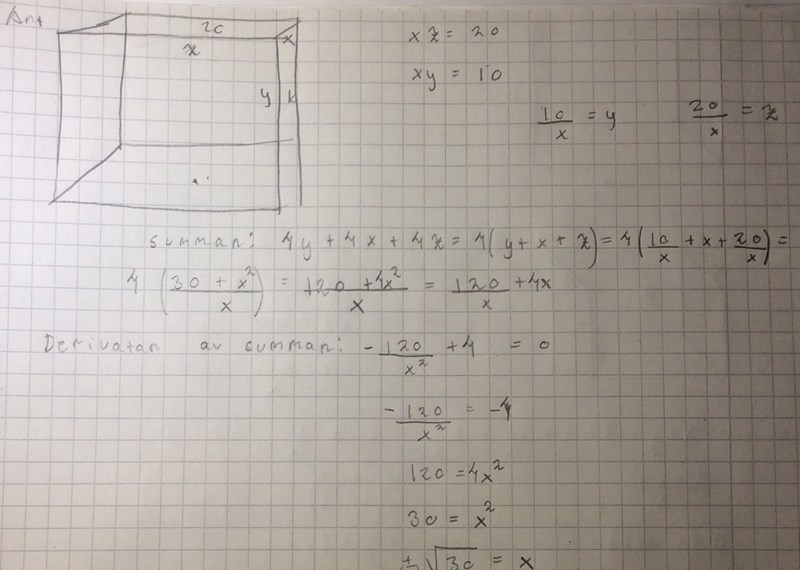 Ant
20
x
x
y
k
xz = 20
xy = 10
10/x = y
20/x = z
summan: 4y + 4x + 4z = 4(y + x + z) = 4(10/x + x + 20/x) =
4((30 + x²)/x) = (120 + 4x²)/x = 120/x + 4x
Derivatan av summan: -120/x² + 4 = 0
-120/x² = -4
120 = 4x²
30 = x²
±√30 = x